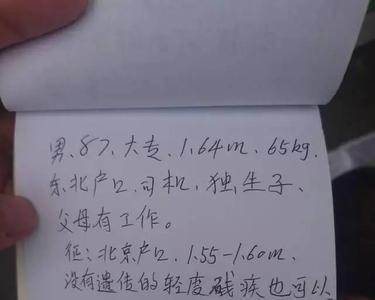 男、87、大专、1.64m、65kg.
东北户口、司机、独生子、
父母有工作。
征:北京户口、1.55-1.60m、
没有遗传的轻度残疾也可以